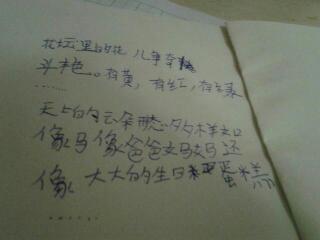 花坛里的花儿争奇
斗艳。有黄，有红，有绿
......
天上的云朵形态多样如
像马像爸爸妈妈还
像大大的生日蛋糕
......